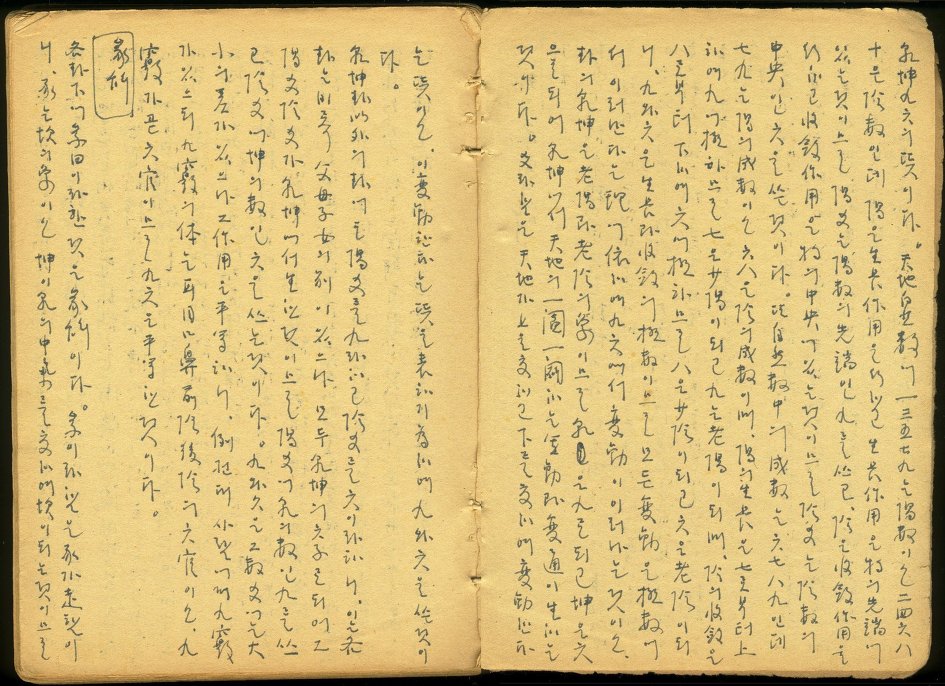 乾坤九六의 뜻이다。天地自然數에 一三五七九는 陽數이오 二四六八
十은 陰數인데 陽은 生長作用을 하고 生長作用은 物의 先端에
있는 것이므로 陽爻는 陽數의 先端인 九를 쓰고, 陰은 收斂作用을
하고 收斂作用은 物의 中央에 있는 것이므로 陰爻는 陰數의
中央인 六을 쓴 것이다。또 自然數中의 成數는 六七八九인데
七九는 陽의 成數이오 六八은 陰의 成數이며, 陽의 生長은 七로부터 上
하여 九에 極하므로 七은 少陽이 되고 九는 老陽이 되며, 陰의 收斂은
八로부터 下하여 六에 極하므로 八은 少陰이 되고 六은 老陰이 되
니, 九와 六은 生長과 收斂의 極數이므로 모든 變動은 極數에
서 이러난다는 理에 依하여 九六에서 變動이 이러나는 것이오,
卦의 乾坤은 老陽과 老陰의 象이므로 乾은 九로 되고 坤은 六
으로 되어 乾坤에서 天地의 一闔一闢하는 運動과 變通이 生하는
것이다。 天地가 上을 交하고 下를 交하여 變動한다
는 뜻이오, 이 變動한다는 뜻을 表하기 爲하여 九와 六을 쓴 것이
다。
乾坤卦以外의 卦에도 陽爻를 九라 하고 陰爻를 六이라 하니, 이는 各
卦는 비록 父母子女의 別이 있으나 모두 乾坤의 六子로 되어 그
陽爻陰爻가 乾坤에서 生한 것이므로 陽爻에 乾의 數인 九를 쓰
고 陰爻에 坤의 數인 六을 쓰는 것이다。九와 六은 그 數爻에는 大
小의 差가 있으나 그 作用은 平等하니, 例컨대 사람에게 九竅
가 있으되 九竅의 体는 耳目口鼻前陰後陰의 六官이오, 九
竅가 곧 六官이므로 九六은 平等한 것이다。
彖辭
各卦下에 彖曰이라 한 것은 彖辭이다。彖이라 함은 豕가 走함이
니 豕는 坎의 象이오 坤이 乾의 中氣를 交하여 坎이 되는 것이므로